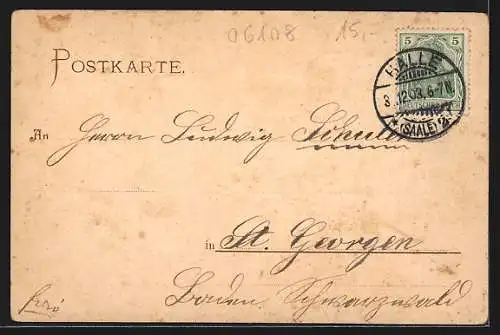 06108 15,-
5 5
HALLE
3.12.03.6-7N
*(SAALE)2*
POSTKARTE.
An Herrn Ludwig Schult
in St. Georgen
Baden. Schwarzwald